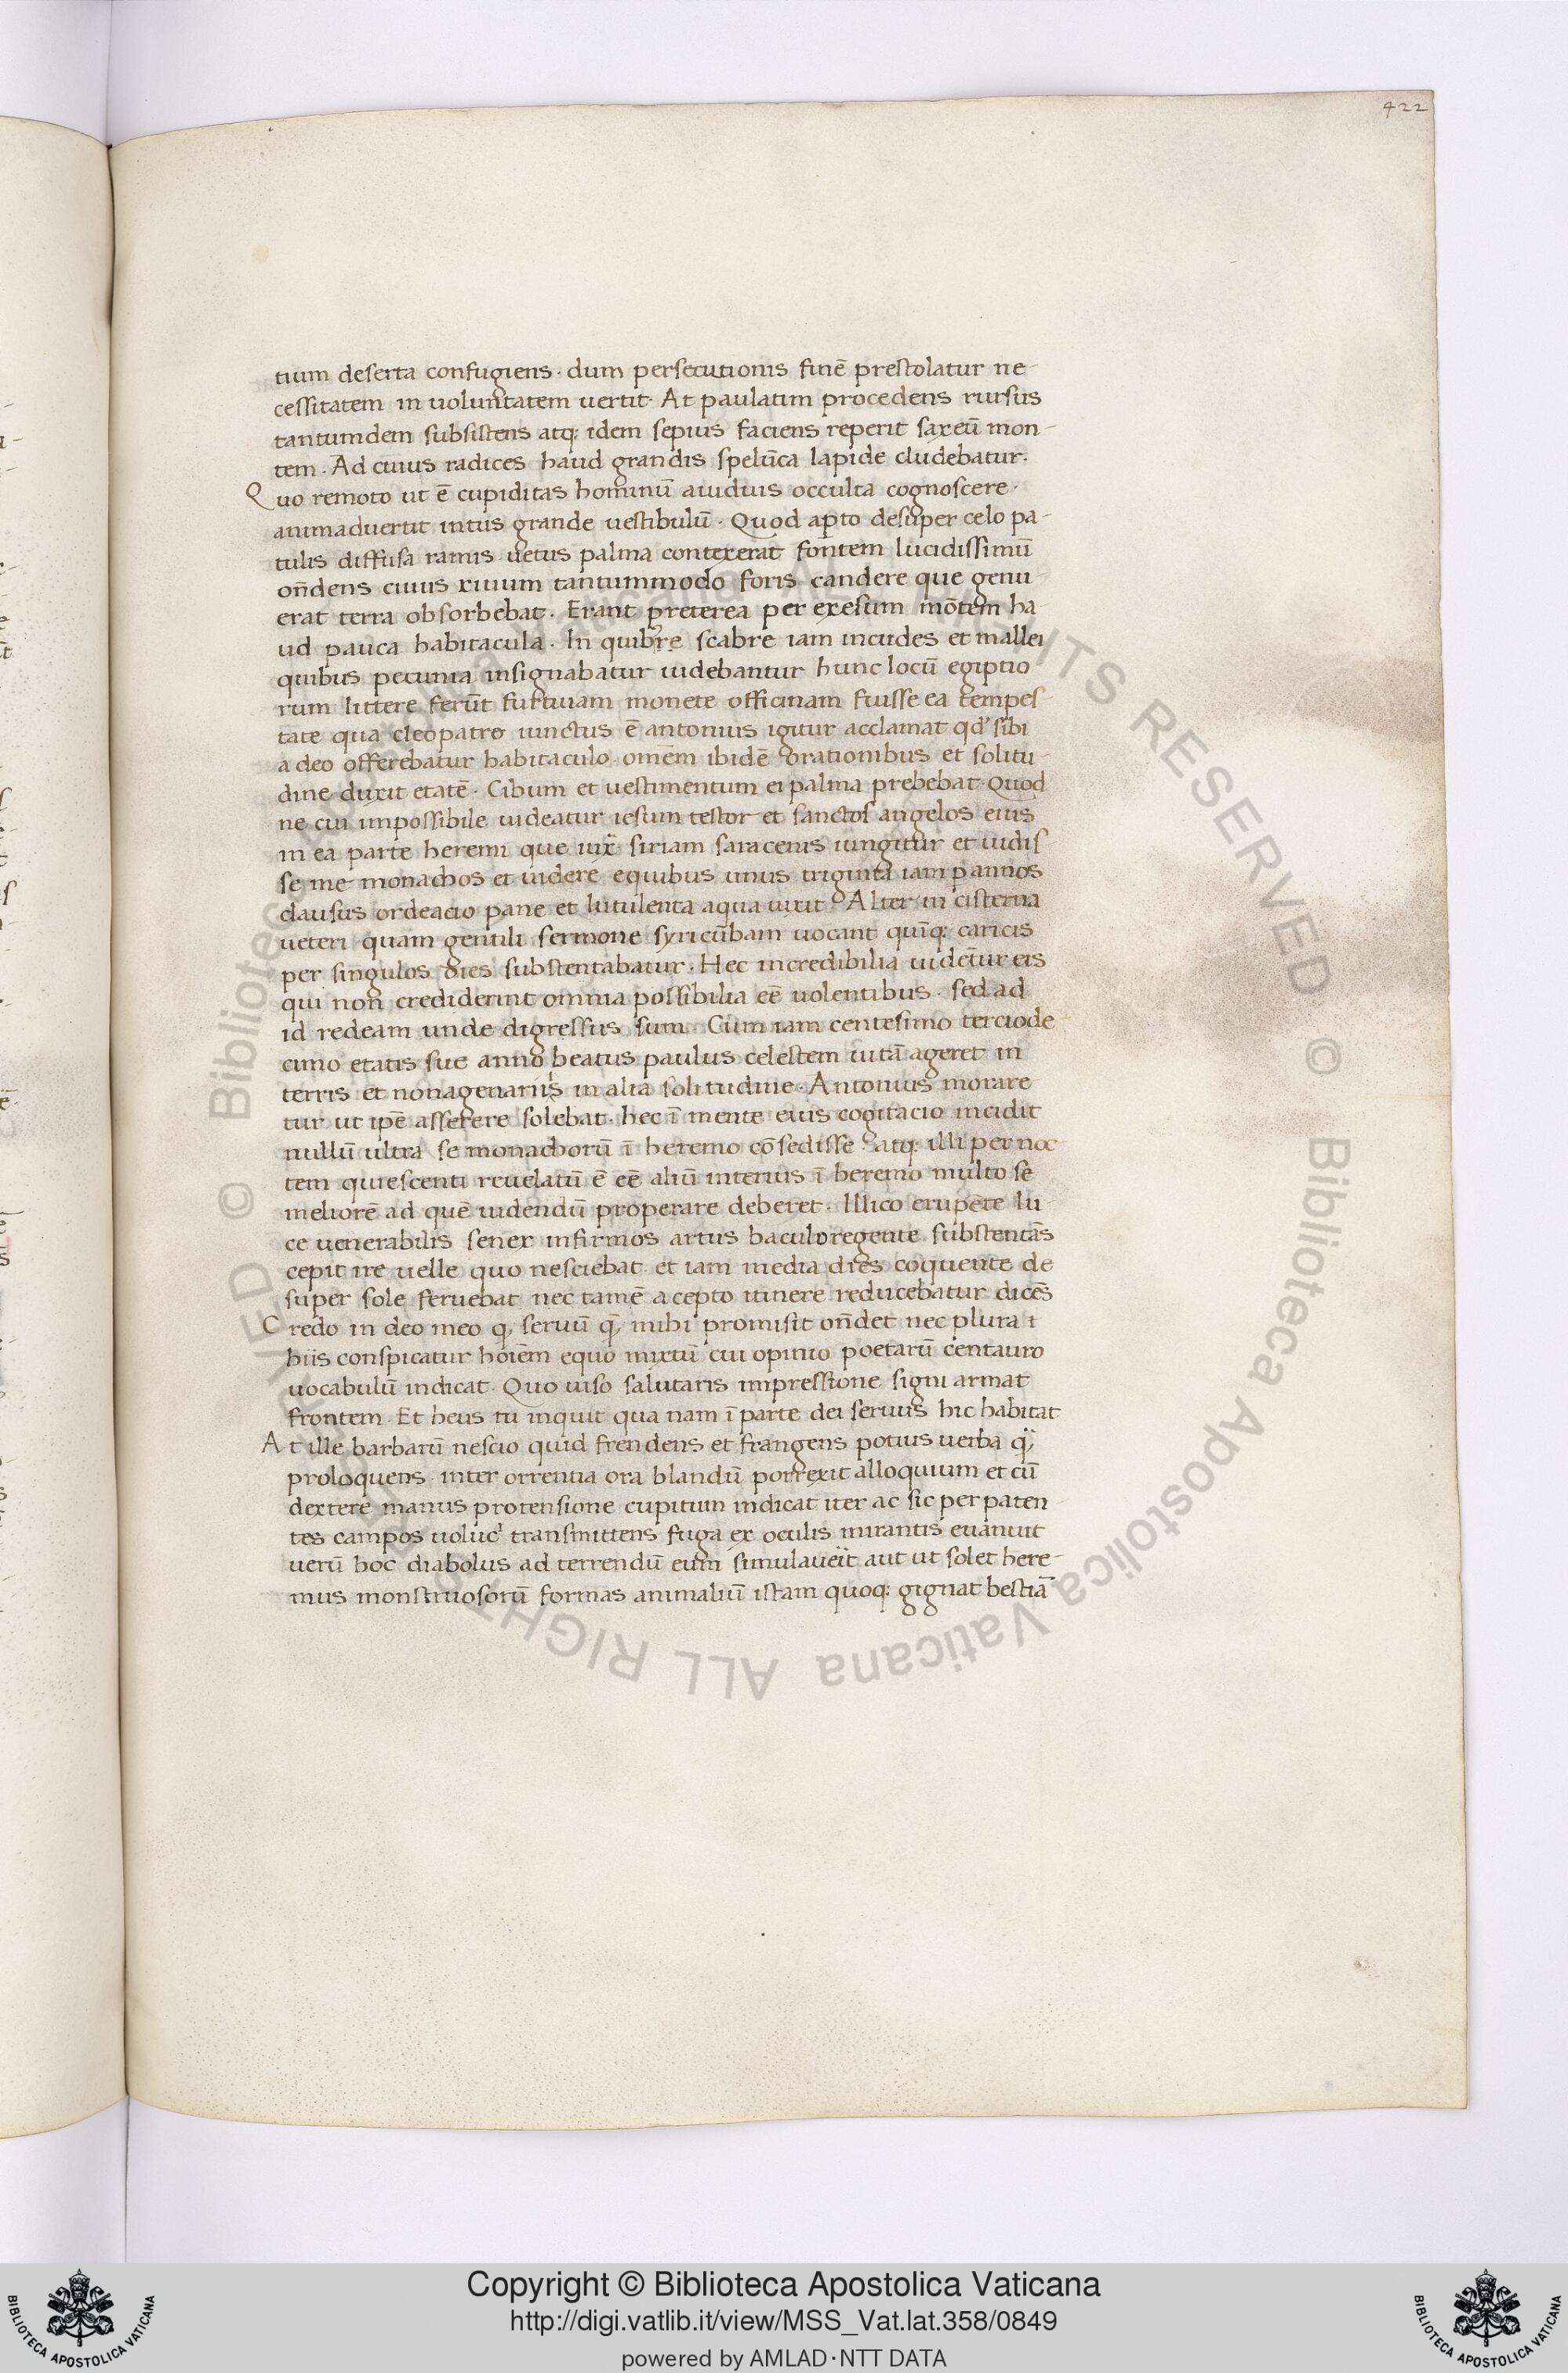 422
tium deserta confugiens· dum persecutionis finē prestolatur ne-
cessitatem in uoluntatem uertit· At paulatim procedens rursus
tantumdem subsistens atq; idem sepius faciens reperit saxeū mon-
tem· Ad cuius radices haud grandis spelūca lapide cludebatur·
Quo remoto ut ē cupiditas hominū auidius occulta cognoscere·
animaduertit intus grande uestibulū· Quod apto desuper celo pa-
tulis diffusa ramis uetus palma contexerat fontem lucidissimū
oñdens cuius riuum tantummodo foris candere que genu-
erat terra obsorbebat· Erant preterea per exesum mōtem ha-
ud pauca habitacula· In scabre iam incudes et mallei
quibus pecunia insignabatur uidebantur hunc locū egiptio
rum littere ferūt furtiuam monete officinam fuisse ea tempes-
tate qua cleopatre iunctus ē antonius igitur acclamat sibi
a deo offerebatur habitaculo· omēm ibidē orationibus et solitu-
dine duxit etatē· Cibum et uestimentum ei palma prebebat· Quod
ne cui impossibile uideatur iesum testor et sanctos angelos eius
in ea parte heremi que siriam saracenis iungitur et uidis-
se me monachos et uidere equibus unus triginta iam p annos
clausus ordeacio pane et lutulenta aqua uixit· Alter in cisterna
ueteri quam gentili sermone syricūbam uocant quīq; caricis
per singulos dies substentabatur· Hec incredibilia uidētur eis
qui non crediderint omnia possibilia eē uolentibus· sed ad
id redeam unde digressus sum· Cum iam centesimo terciode
cimo etatis sue anno beatus paulus celestem uitā ageret in
terris et nonagenarius in alia solitudine· Antonius morare
tur ut ipē asserere solebat· hec ī mente eius cogitacio incidit
nullū ultra se monachorū ī heremo cōsedisse· atq; illi per noc
tem quiescenti reuelatū ē eē aliū interius ī heremo multo se
meliorē ad quē uidendū properare deberet· Illico erupēte lu-
ce uenerabilis senex infirmos artus baculo regente substentās
cepit ire uelle quo nesciebat· et iam media dies coquente de
super sole feruebat nec tamē a cepto itinere reducebatur dicēs
Credo in deo meo seruū mihi promisit oñdet nec plura i
hiis conspicatur hoiēm equo mixtū cui opinio poetarū centauro
uocabulū indicat· Quo uiso salutaris impressione signi armat
frontem· Et heus tu inquit qua nam ī parte dei seruus hic habitat
At ille barbarū nescio quid frendens et frangens potius uerba
proloquens· inter orrentia ora blandū porrexit alloquium et cū
dextere manus protensione cupitum indicat iter ac sic per paten-
tes campos transmittens fuga ex oculis mirantis euanuit
uerū hoc diabolus ad terrendū eum aut ut solet here-
mus monstruosorū formas animaliū istam quoq; gignat bestiā
© Biblioteca Apostolica Vaticana ALL RIGHTS RESERVED © Biblioteca Apostolica Vaticana ALL RIGHTS RESERVED
Copyright © Biblioteca Apostolica Vaticana
http://digi.vatlib.it/view/MSS_Vat.lat.358/0849
powered by AMLAD·NTT DATA
BIBLIOTECA APOSTOLICA VATICANA
BIBLIOTECA APOSTOLICA VATICANA